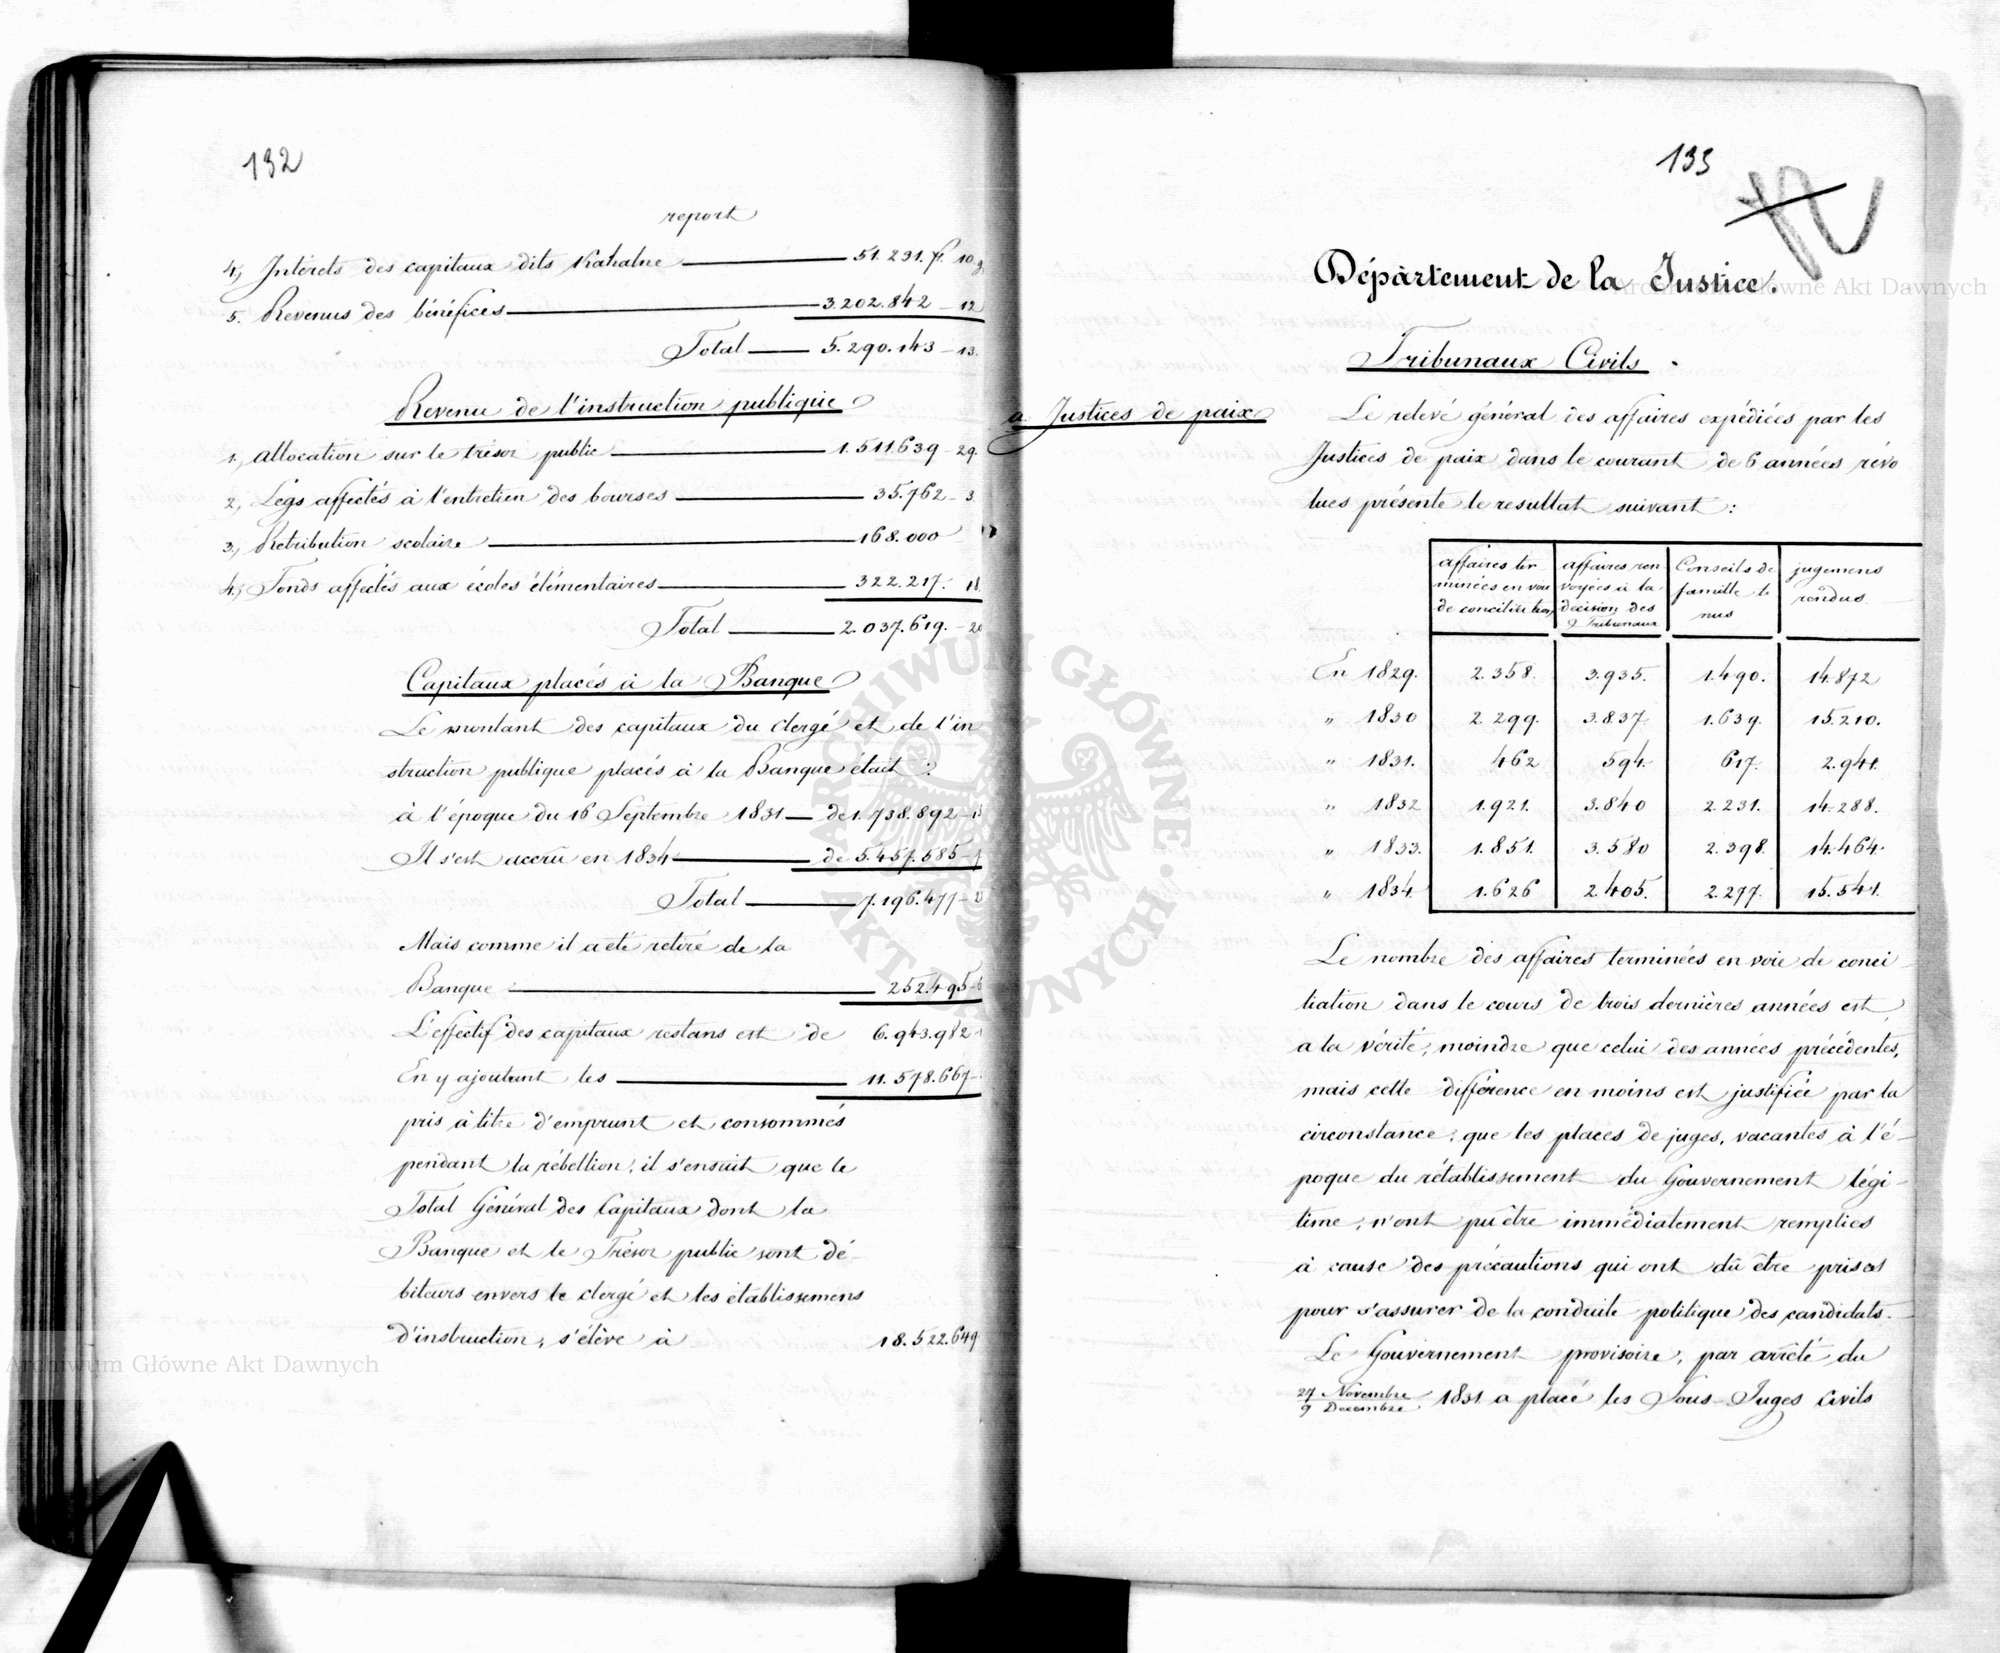 132
report
4, Intérets des capitaux dits Kahalne 51.231. fl. 10 g
5. Revenus des bénéfices 3.202.842 - 12
Total 5.290.143 - 13.
Revenu de l'instruction publique
1, Allocation sur le trésor public 1.511.639 - 29.
2, Legs affectés à l'entretien des bourses 35.762 - 3
3, Retribution scolaire 168.000
4, Fonds affectés aux écoles élémentaires 322.217. 18.
Total 2.037.619. - 20
Capitaux placés à la Banque
Le montant des capitaux du clergé et de l'in
struction publique placés à la Banque était :
à l'époque du 16 Septembre 1831 de 1.738.892
Il s'est accrû en 1834 de 5.457.585
Total 7.196.477
Mais comme il a été retiré de la
Banque 252.495 - 6
L'effectif des capitaux restans est de 6.943.982
En y ajoutant les 11.578.667
pris à titre d'emprunt et consommés
pendant la rébellion, il s'ensuit que le
Total Général des Capitaux dont la
Banque et le Trésor public sont dé-
biteurs envers le clergé et les établissemens
d'instruction, s'élève à 18.522.649
133
Département de la Justice.
Tribunaux Civils.
a. Justices de paix
Le relevé général des affaires expédiées par les
Justices de paix dans le courant de 6 années révo
lues présente le resultat suivant :
affaires ter- affaires ren Conseils de jugemens
minées en voie voyées à la famille te rendus
de conciliation décision des nus
Tribunaux
En 1829. 2.358. 3.935. 1.490. 14.872
" 1830 2.299. 3.837. 1.639. 15.210.
" 1831. 462 594. 617. 2.941.
" 1832 1.921. 3.840 2.231. 14.288.
" 1833. 1.851. 3.580 2.398. 14.464.
" 1834 1.626 2.405. 2.277. 15.541.
Le nombre des affaires terminées en voie de conci-
liation dans le cours de trois dernières années est,
a la vérité, moindre que celui des années précédentes,
mais cette différence en moins est justifiée par la
circonstance, que les places de juges, vacantes à l'é-
poque du rétablissement du Gouvernement légi-
time, n'ont pu être immédiatement remplies
à cause des précautions qui ont dû être prises
pour s'assurer de la conduite politique des candidats.
Le Gouvernement provisoire, par arrêté du
27 Novembre
9 Decembre 1831 a placé les Sous-Juges Civils
Archiwum Główne Akt Dawnych
ARCHIWUM GŁÓWNE AKT DAWNYCH
Archiwum Główne Akt Dawnych